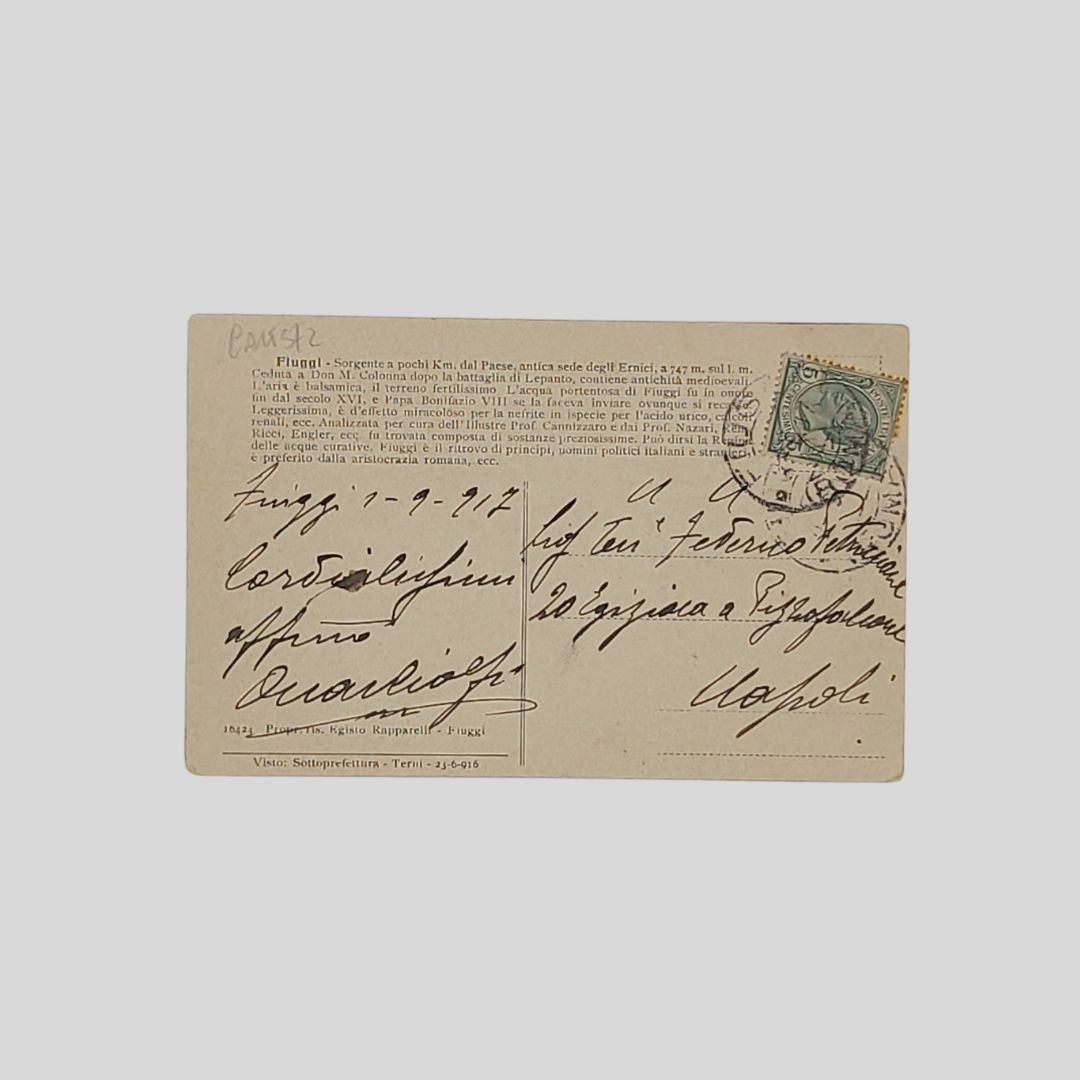 Fiuggi - Sorgente a pochi Km. dal Paese, antica sede degli Ernici, a 747 m. sul l. m.
Ceduta a Don M. Colonna dopo la battaglia di Lepanto, contiene antichità medioevali.
L'aria è balsamica, il terreno fertilissimo. L'acqua portentosa di Fiuggi fu in onore
fin dal secolo XVI, e Papa Bonifazio VIII se la faceva inviare ovunque si
Leggerissima, è d'effetto miracoloso per la nefrite in ispecie per l'acido urico, calcoli
renali, ecc. Analizzata per cura dell'Illustre Prof. Cannizzaro e dai Prof. Nazari,
Ricci, Engler, ecc. fu trovata composta di sostanze preziosissime. Può dirsi la Regina
delle acque curative. Fiuggi è il ritrovo di principi, uomini politici italiani e stranieri,
è preferito dalla aristocrazia romana, ecc.
POSTE ITALIANE
CENTESIMI 5
Fiuggi 1-9-917
Cordialissimi
affmo
Sig Ten Federico
20 Egiziaca a Pizzofalcone
Napoli
16424 Propr. ris. Egisto Rapparelli - Fiuggi
Visto: Sottoprefettura - Terni - 23-6-916